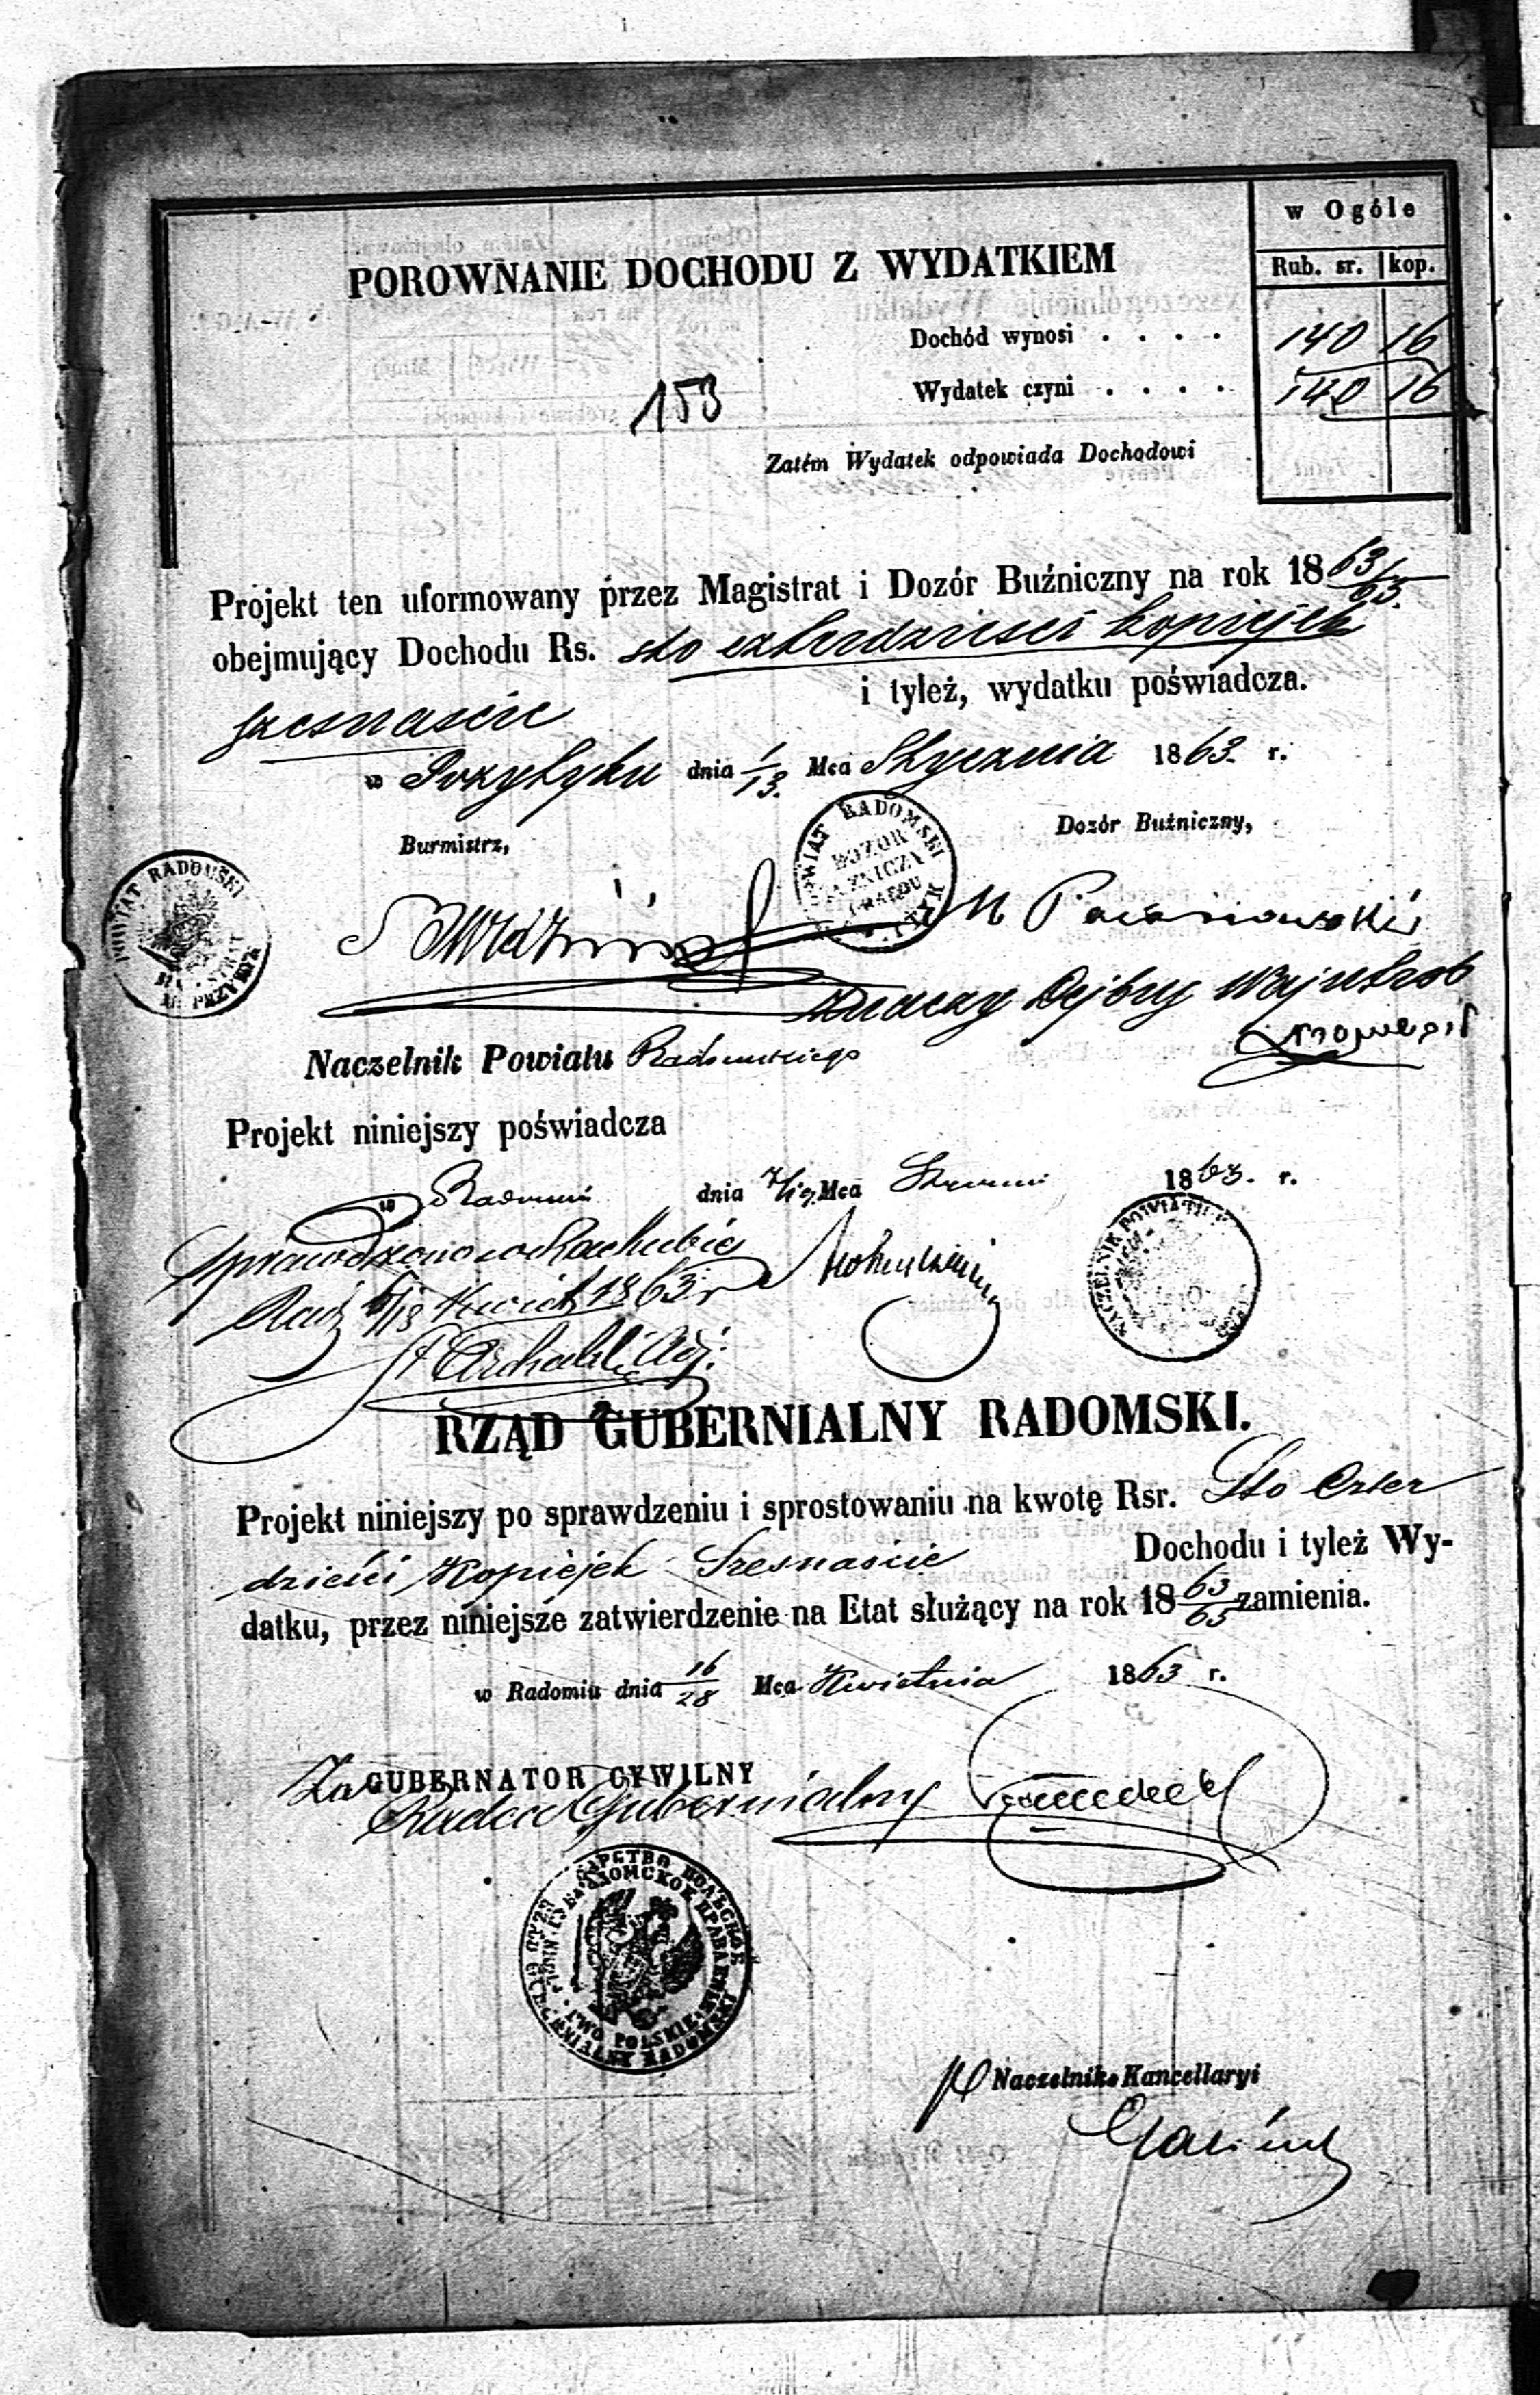 w Ogóle
POROWNANIE DOCHODU Z WYDATKIEM
Rub. sr. kop.
Dochód wynosi . . . . 140 16
Wydatek czyni . . . . 140 16
153
Zatém Wydatek odpowiada Dochodowi
Projekt ten uformowany przez Magistrat i Dozór Buźniczny na rok 1863/65.
obejmujący Dochodu Rs. sto czterdzieści kopiejek
szesnaście i tyleż, wydatku poświadcza.
w Przytyku dnia 1/13. Mca Stycznia 1863 r.
Burmistrz, Dozór Buźniczny,
POWIAT RADOMSKI
DOZOR
POWIAT RADOMSKI
M. PRZYTYK
Naczelnik Powiatu Radomskiego
Projekt niniejszy poświadcza
w Radomiu dnia 7/19 Mca 1863. r.
Sprawdzono w Rachubie
Rad. 6/18 Kwiet 1863 r
NACZELNIK POWIATU
RZĄD GUBERNIALNY RADOMSKI.
Projekt niniejszy po sprawdzeniu i sprostowaniu na kwotę Rsr. Sto Czter
dzieści Kopiejek Szesnaście Dochodu i tyleż Wy-
datku, przez niniejsze zatwierdzenie na Etat służący na rok 1863/65 zamienia.
w Radomiu dnia 16/28 Mca Kwietnia 1863 r.
Za GUBERNATOR CYWILNY
Radca Gubernialny
Naczelnika Kancellaryi